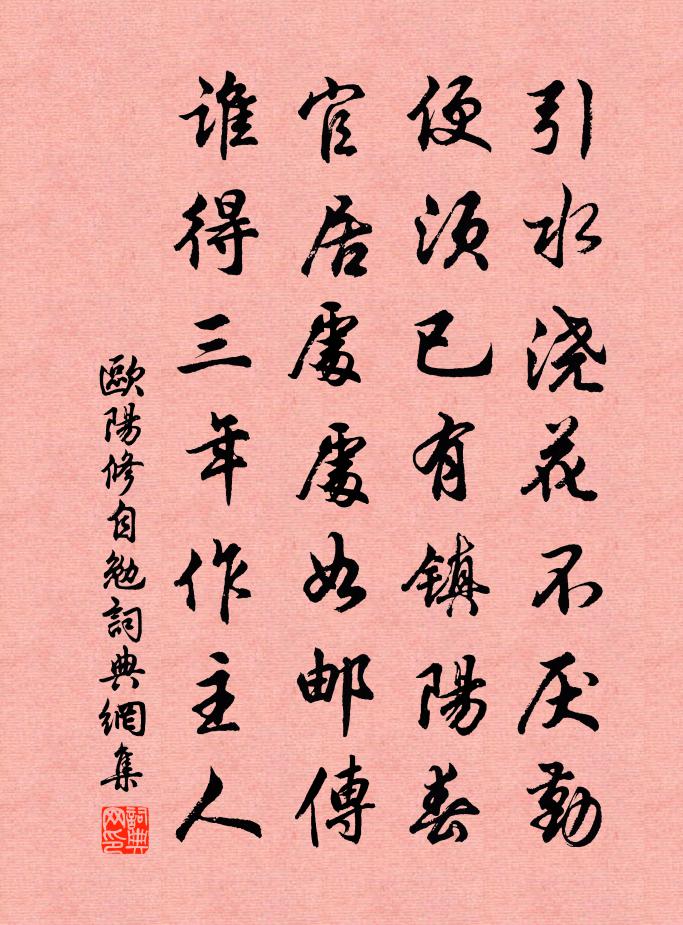 引水浇花不厌勤
便须已有镇陽春
官居處處如邮傳
谁得三年作主人
歐陽修自勉詞典網集
詞典网印